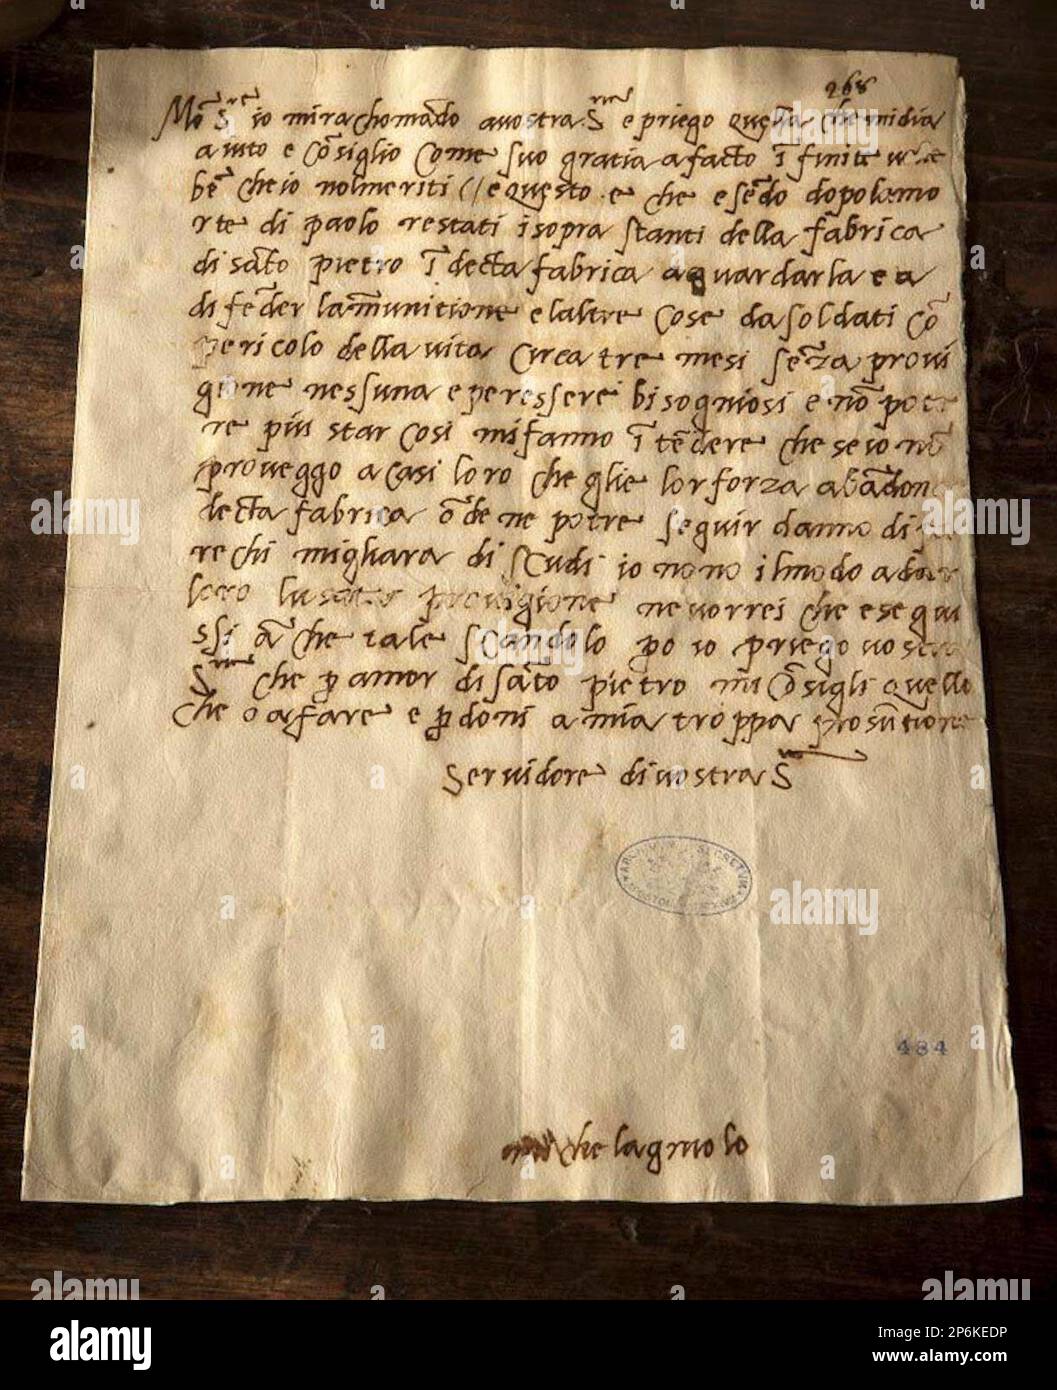 268
Mo͂ S.re io mi rachomādo avostra S.ria e priego quella che midia
aiuto e cōsiglio come suo gratia a facto ī finite volte
bē che io nolmeriti (/e questo e che esēdo dopo lamo
rte di paolo restati i sopra stanti della fabrica
di sāto pietro ī decta fabrica a guardarla e a
difēder la munitione e laltre cose da soldati cō
pericolo della vita circa tre mesi sēza provi
gione nessuna e peressere i bisogniosi e nō pote
re piu star cosi mi fanno ītēdere che se io nō
proveggo a casi loro che glie lor forza abādon
decta fabrica ōde ne potre seguir danno di
rechi migliara di scudi io nono il modo a dar
loro lusata provigione ne vorrei che e segui
ssi āche tale scandolo po io priego vostra
S.ria che p amor di sāto pietro mi cōsigli quello
che o a fare e pdoni a mia troppa prosūtione
Servidore di vostra S.ria
ARCHIVUM SECRETUM
484
michelagniolo
alamy
Image ID: 2P6KEDP
www.alamy.com